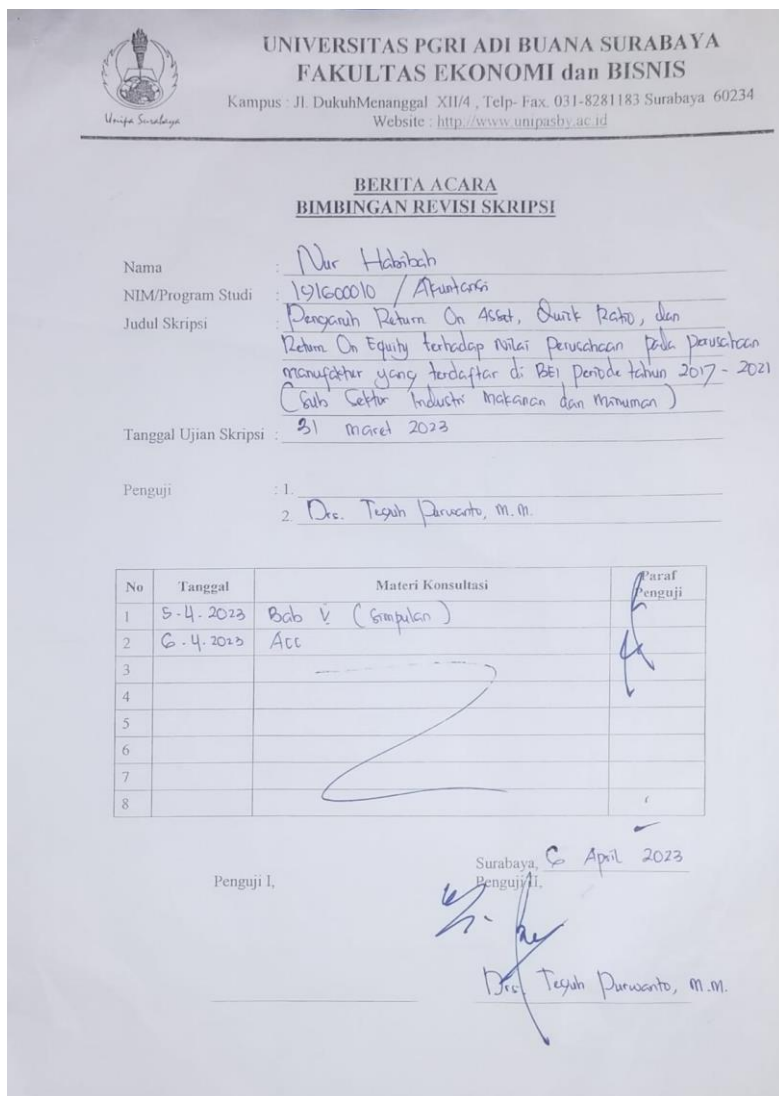 UNIVERSITAS PGRI ADI BUANA SURABAYA
FAKULTAS EKONOMI dan BISNIS
Kampus : Jl. DukuhMenanggal XII/4 , Telp- Fax. 031-8281183 Surabaya 60234
Website : http://www.unipasby.ac.id
Unipa Surabaya
BERITA ACARA
BIMBINGAN REVISI SKRIPSI
Nama : Nur Habibah
NIM/Program Studi : 191600010 / Akuntansi
Judul Skripsi : Pengaruh Return On Asset, Quick Ratio, dan
Return On Equity terhadap Nilai Perusahaan pada perusahaan
manufaktur yang terdaftar di BEI periode tahun 2017 - 2021
(Sub Sektor Industri Makanan dan Minuman)
Tanggal Ujian Skripsi : 31 Maret 2023
Penguji : 1.
2. Drs. Teguh Purwanto, M.M.
No Tanggal Materi Konsultasi Paraf Penguji
1 5-4-2023 Bab V (Simpulan)
2 6-4-2023 Acc
3
4
5
6
7
8
Surabaya, 6 April 2023
Penguji I, Penguji II,
Drs. Teguh Purwanto, M.M.